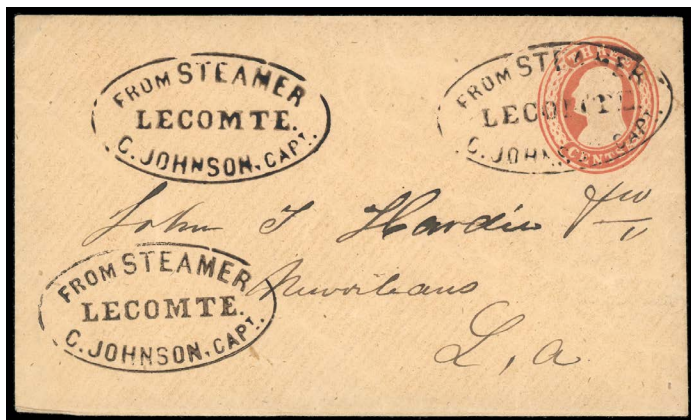 FROM STEAMER
LECOMTE.
C. JOHNSON, CAPT.
THREE
CENTS
FROM STEAMER
LECOMTE.
C. JOHNSON, CAPT.
John T Hardin
FROM STEAMER
LECOMTE.
C. JOHNSON, CAPT.
Neworleans
L, a